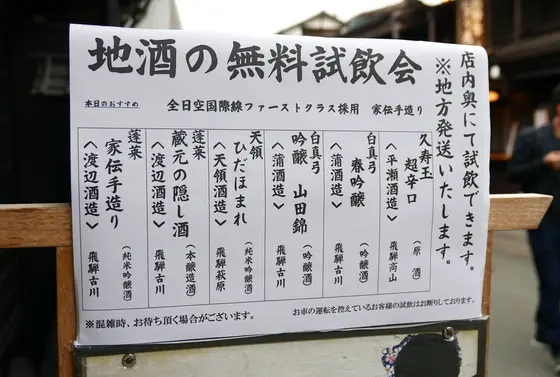 地酒の無料試飲会
店内奥にて試飲できます。
※地方発送いたします。
本日のおすすめ
全日空国際線ファーストクラス採用 家伝手造り
久寿玉 超辛口 (原酒)
〈平瀬酒造〉 飛騨高山
白真弓 春吟醸 (吟醸)
〈蒲酒造〉 飛騨古川
白真弓 吟醸 山田錦 (吟醸)
〈蒲酒造〉 飛騨古川
天領 ひだほまれ (純米吟醸酒)
〈天領酒造〉 飛騨萩原
蓬莱 蔵元の隠し酒 (本醸造酒)
〈渡辺酒造〉 飛騨古川
蓬莱 家伝手造り (純米吟醸酒)
〈渡辺酒造〉 飛騨古川
お車の運転を控えているお客様の試飲はお断りしております。
※混雑時、お待ち頂く場合がございます。